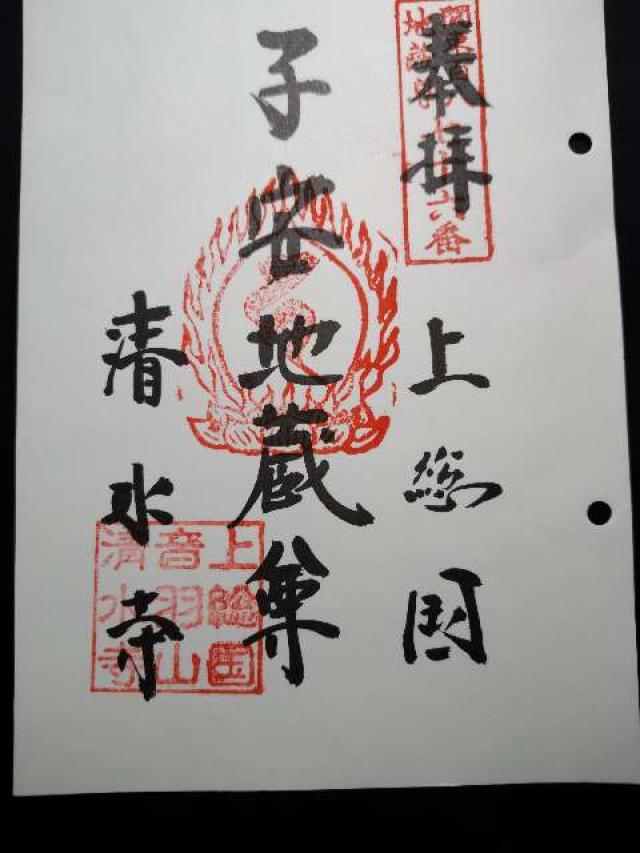 奉拝
上総国
子安地蔵尊
清水寺
関東
地蔵尊
六番
上総国
音羽山
清水寺